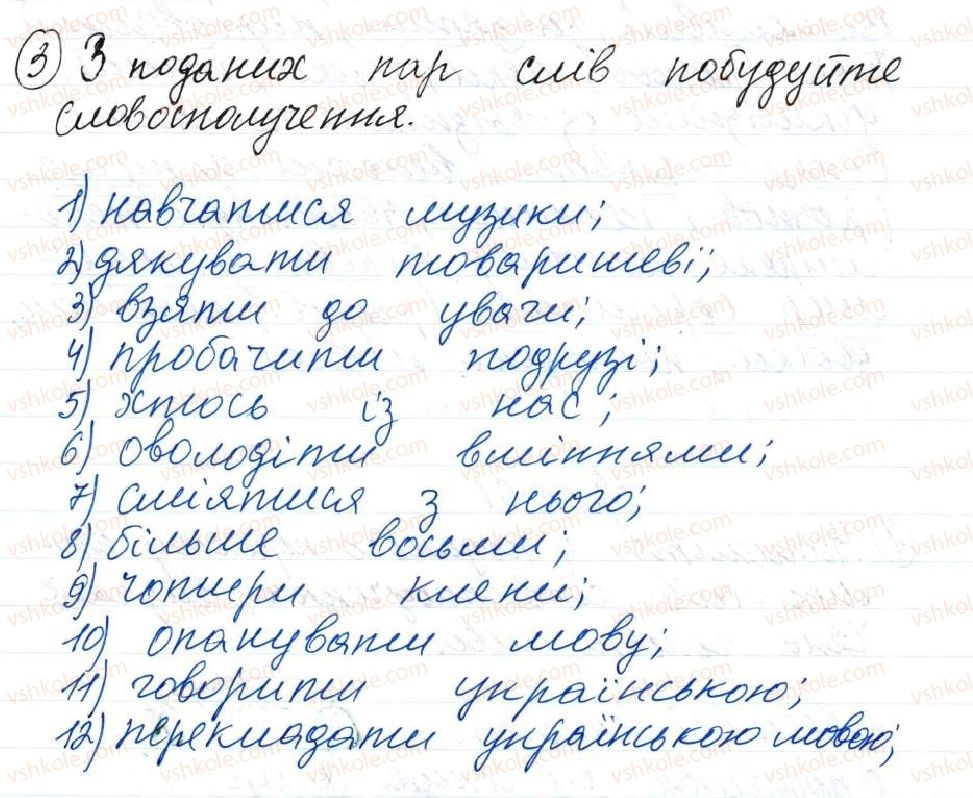 3 З поданих пар слів побудуйте
словосполучення.
1) навчатися музики;
2) дякувати товаришеві;
3) взяти до уваги;
4) пробачити подрузі;
5) хтось із нас;
6) оволодіти вміннями;
7) сміятися з нього;
8) більше восьми;
9) чотири кияни;
10) опанувати мову;
11) говорити українською;
12) перекладати українською мовою;